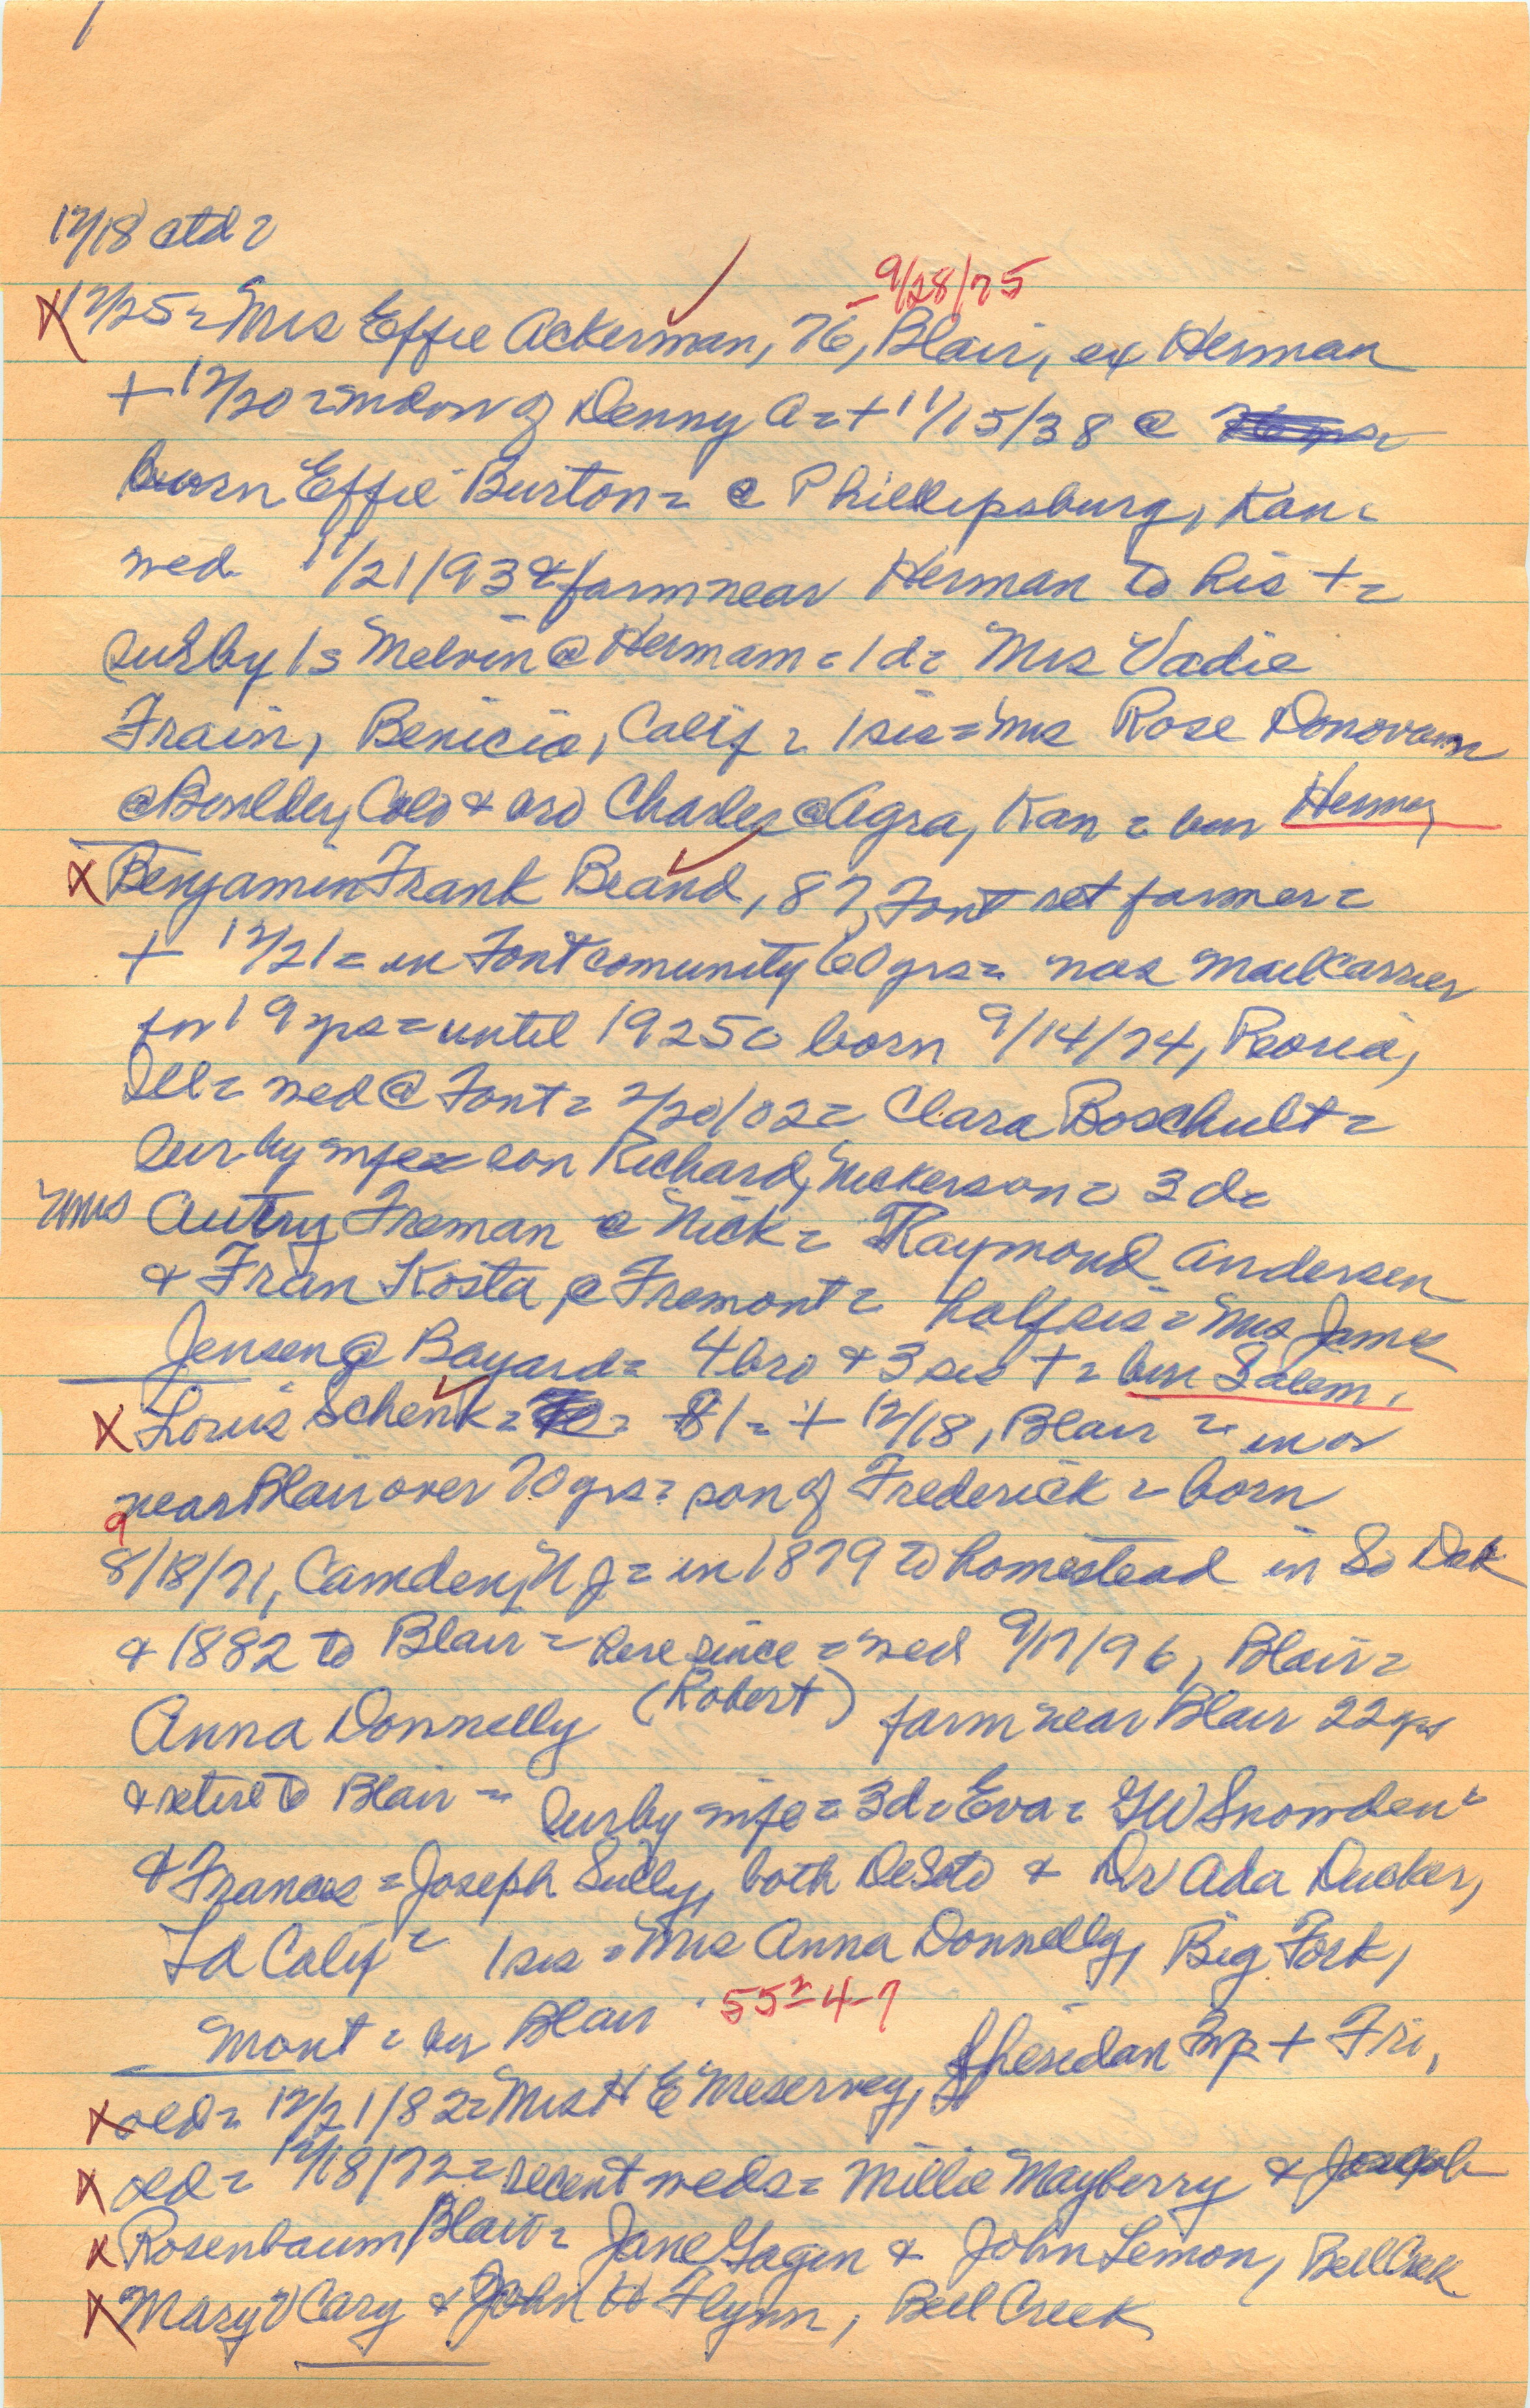 12/18 ctd =
9/28/75
X 12/25 = Mrs Effie Ackerman, 76, Blair, ex Herman
+ 12/20 = widow of Denny A = + 11/15/38 @
born Effie Burton = @ Phillipsburg, Kan =
wed 11/21/93 & farm near Herman to his + =
Surby 1s Melvin @ Hermam = 1d = Mrs Vadie
Train, Benicia, Calif = 1 sis = Mrs Rose Donovan
@ Boulder, Colo & bro Charles @ Agra, Kan = bur Herman
X Benjamin Frank Beand, 87, Font ret farmer =
+ 12/21 = in Font comunity 60 yrs = was mail carrier
for 19 yrs = until 1925 = born 9/14/74, Peoria,
Ill = wed @ Font = 2/20/02 = Clara Boschult =
Sur by wife = son Richard, Nickerson = 3 d =
Mrs Autry Freman @ Nick = Raymond Andersen
& Fran Kosta, @ Fremont = half sis = Mrs James
Jensen @ Bayard = 4 bro & 3 sis + = bur Salem.
X Louis Schenk = 81 = + 12/18, Blair = in or
near Blair over 70 yrs = son of Frederick = born
9
8/18/71, Camden, N J = in 1879 to homestead in So Dak
& 1882 to Blair = here since = wed 9/17/96, Blair =
Anna Donnelly (Robert) farm near Blair 22 yrs
& retire to Blair = Surby wife = 3d = Eva = G W Snowden =
& Frances = Joseph Sully, both DeSoto & Dr Ada Ducker,
Calif = 1 sis = Mrs Anna Donnelly, Big Fork,
Mont = bur Blair 55 = 4-7
X old = 12/21/82 = Mrs H E Meservey, Sheridan Twp + Fri,
X old = 12/18/72 = recent weds = Millie Mayberry & Joseph
X Rosenbaum, Blair = Jane Gagen & John Lemon, Bell Creek
X Mary V Cary & John H Flynn, Bell Creek